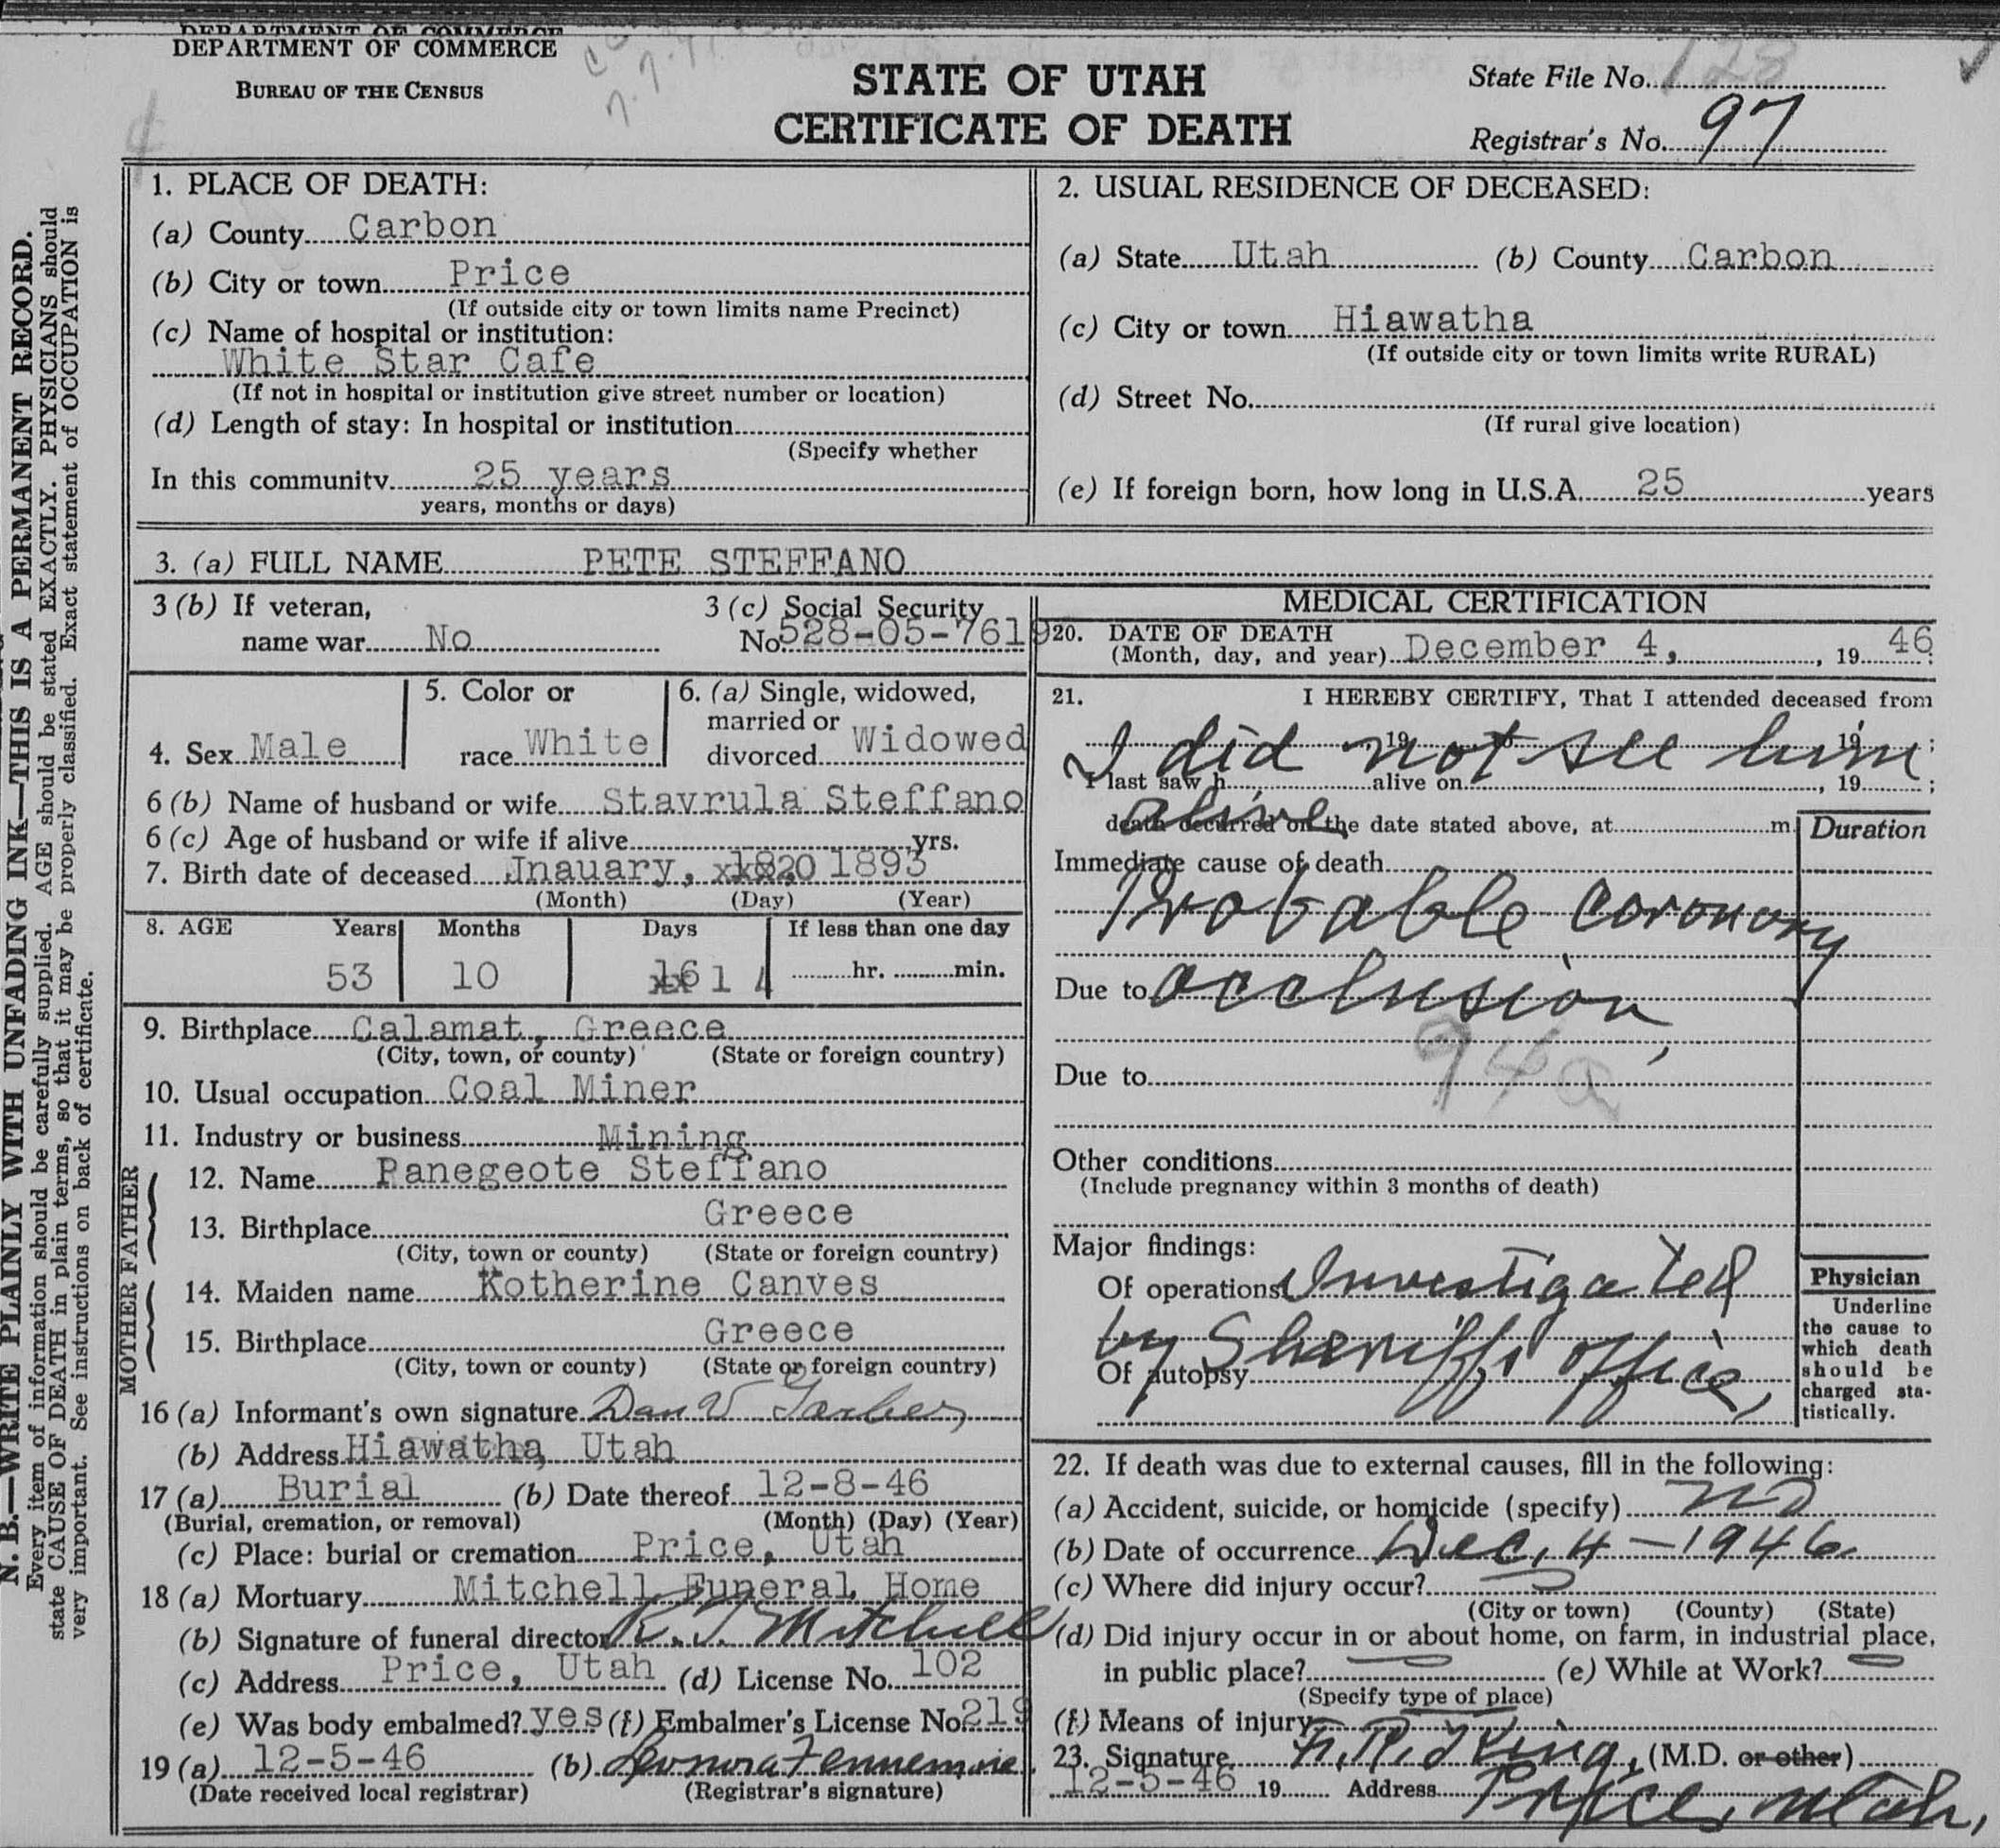 DEPARTMENT OF COMMERCE
DEPARTMENT OF COMMERCE
BUREAU OF THE CENSUS
STATE OF UTAH
CERTIFICATE OF DEATH
State File No. 128
Registrar's No. 97
N. B.—WRITE PLAINLY WITH UNFADING INK—THIS IS A PERMANENT RECORD.
Every item of information should be carefully supplied. AGE should be stated EXACTLY. PHYSICIANS should
state CAUSE OF DEATH in plain terms, so that it may be properly classified. Exact statement of OCCUPATION is
very important. See instructions on back of certificate.
1. PLACE OF DEATH:
(a) County Carbon
(b) City or town Price
(If outside city or town limits name Precinct)
(c) Name of hospital or institution:
White Star Cafe
(If not in hospital or institution give street number or location)
(d) Length of stay: In hospital or institution
(Specify whether
In this community 25 years
years, months or days)
2. USUAL RESIDENCE OF DECEASED:
(a) State Utah (b) County Carbon
(c) City or town Hiawatha
(If outside city or town limits write RURAL)
(d) Street No.
(If rural give location)
(e) If foreign born, how long in U.S.A. 25 years
3. (a) FULL NAME PETE STEFFANO
3 (b) If veteran,
name war No
3 (c) Social Security
No. 528-05-7619
4. Sex Male
5. Color or
race White
6. (a) Single, widowed,
married or
divorced Widowed
6 (b) Name of husband or wife Stavrula Steffano
6 (c) Age of husband or wife if alive yrs.
7. Birth date of deceased Jnauary, 20 1893
(Month) (Day) (Year)
8. AGE Years Months Days If less than one day
53 10 14 hr. min.
9. Birthplace Calamat, Greece
(City, town, or county) (State or foreign country)
10. Usual occupation Coal Miner
11. Industry or business Mining
FATHER
12. Name Panegeote Steffano
13. Birthplace Greece
(City, town or county) (State or foreign country)
MOTHER
14. Maiden name Kotherine Canves
15. Birthplace Greece
(City, town or county) (State or foreign country)
16 (a) Informant's own signature Dan V
(b) Address Hiawatha, Utah
17 (a) Burial (b) Date thereof 12-8-46
(Burial, cremation, or removal) (Month) (Day) (Year)
(c) Place: burial or cremation Price, Utah
18 (a) Mortuary Mitchell Funeral Home
(b) Signature of funeral director R. T. Mitchell
(c) Address Price, Utah (d) License No. 102
(e) Was body embalmed? yes (f) Embalmer's License No. 219
19 (a) 12-5-46 (b) Leonora Fennemore
(Date received local registrar) (Registrar's signature)
MEDICAL CERTIFICATION
20. DATE OF DEATH
(Month, day, and year) December 4, , 19 46
21. I HEREBY CERTIFY, That I attended deceased from
, 19 , 19 ;
I did not see him
I last saw h alive on , 19 ;
alive
death occurred on the date stated above, at m.
Duration
Immediate cause of death
Probable coronary
Due to occlusion,
94a
Due to
Other conditions
(Include pregnancy within 3 months of death)
Major findings:
Of operations Investigated
by Sheriffs office,
Of autopsy
Physician
Underline
the cause to
which death
should be
charged sta-
tistically.
22. If death was due to external causes, fill in the following:
(a) Accident, suicide, or homicide (specify) no
(b) Date of occurrence Dec, 4 – 1946
(c) Where did injury occur?
(City or town) (County) (State)
(d) Did injury occur in or about home, on farm, in industrial place,
in public place? (e) While at Work?
(Specify type of place)
(f) Means of injury
23. Signature King, (M.D. or other)
12-5-46 19 Address Price, Utah,